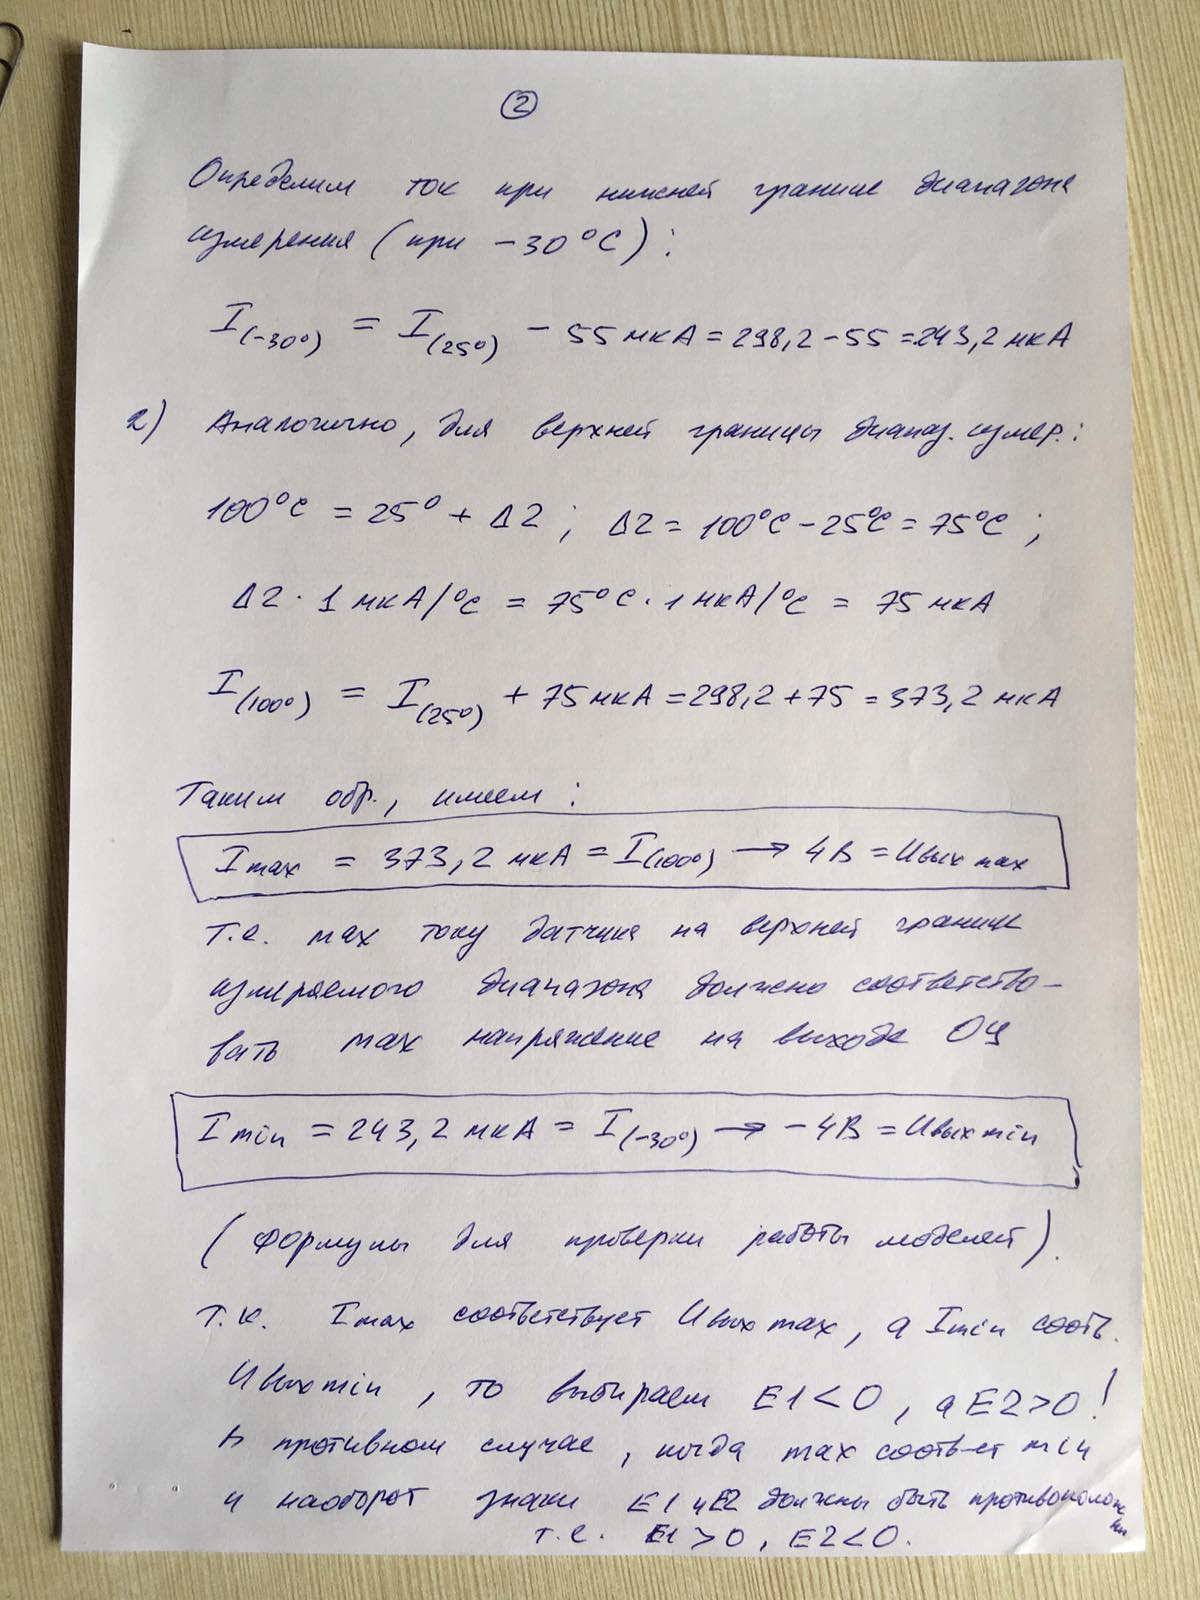 2
Определим ток при нижней границе диапазона
измерения (при −30°C):
I(−30°) = I(25°) − 55 мкА = 298,2 − 55 = 243,2 мкА
2) Аналогично, для верхней границы диапаз. измер.:
100°C = 25° + Δ2; Δ2 = 100°C − 25°C = 75°C;
Δ2 · 1 мкА/°C = 75°C · 1 мкА/°C = 75 мкА
I(100°) = I(25°) + 75 мкА = 298,2 + 75 = 373,2 мкА
Таким обр., имеем:
Imax = 373,2 мкА = I(100°) → 4В = Uвых max
т.е. max току датчика на верхней границе
измеряемого диапазона должно соответство-
вать max напряжение на выходе ОУ
Imin = 243,2 мкА = I(−30°) → −4В = Uвых min
(Формулы для проверки работы моделей).
т.к. Imax соответствует Uвых max, а Imin соотв.
Uвых min, то выбираем E1<0, а E2>0!
В противном случае, когда max соотв-ет min
и наоборот знаки E1 и E2 должны быть противополож
ны
т.е. E1>0, E2<0.